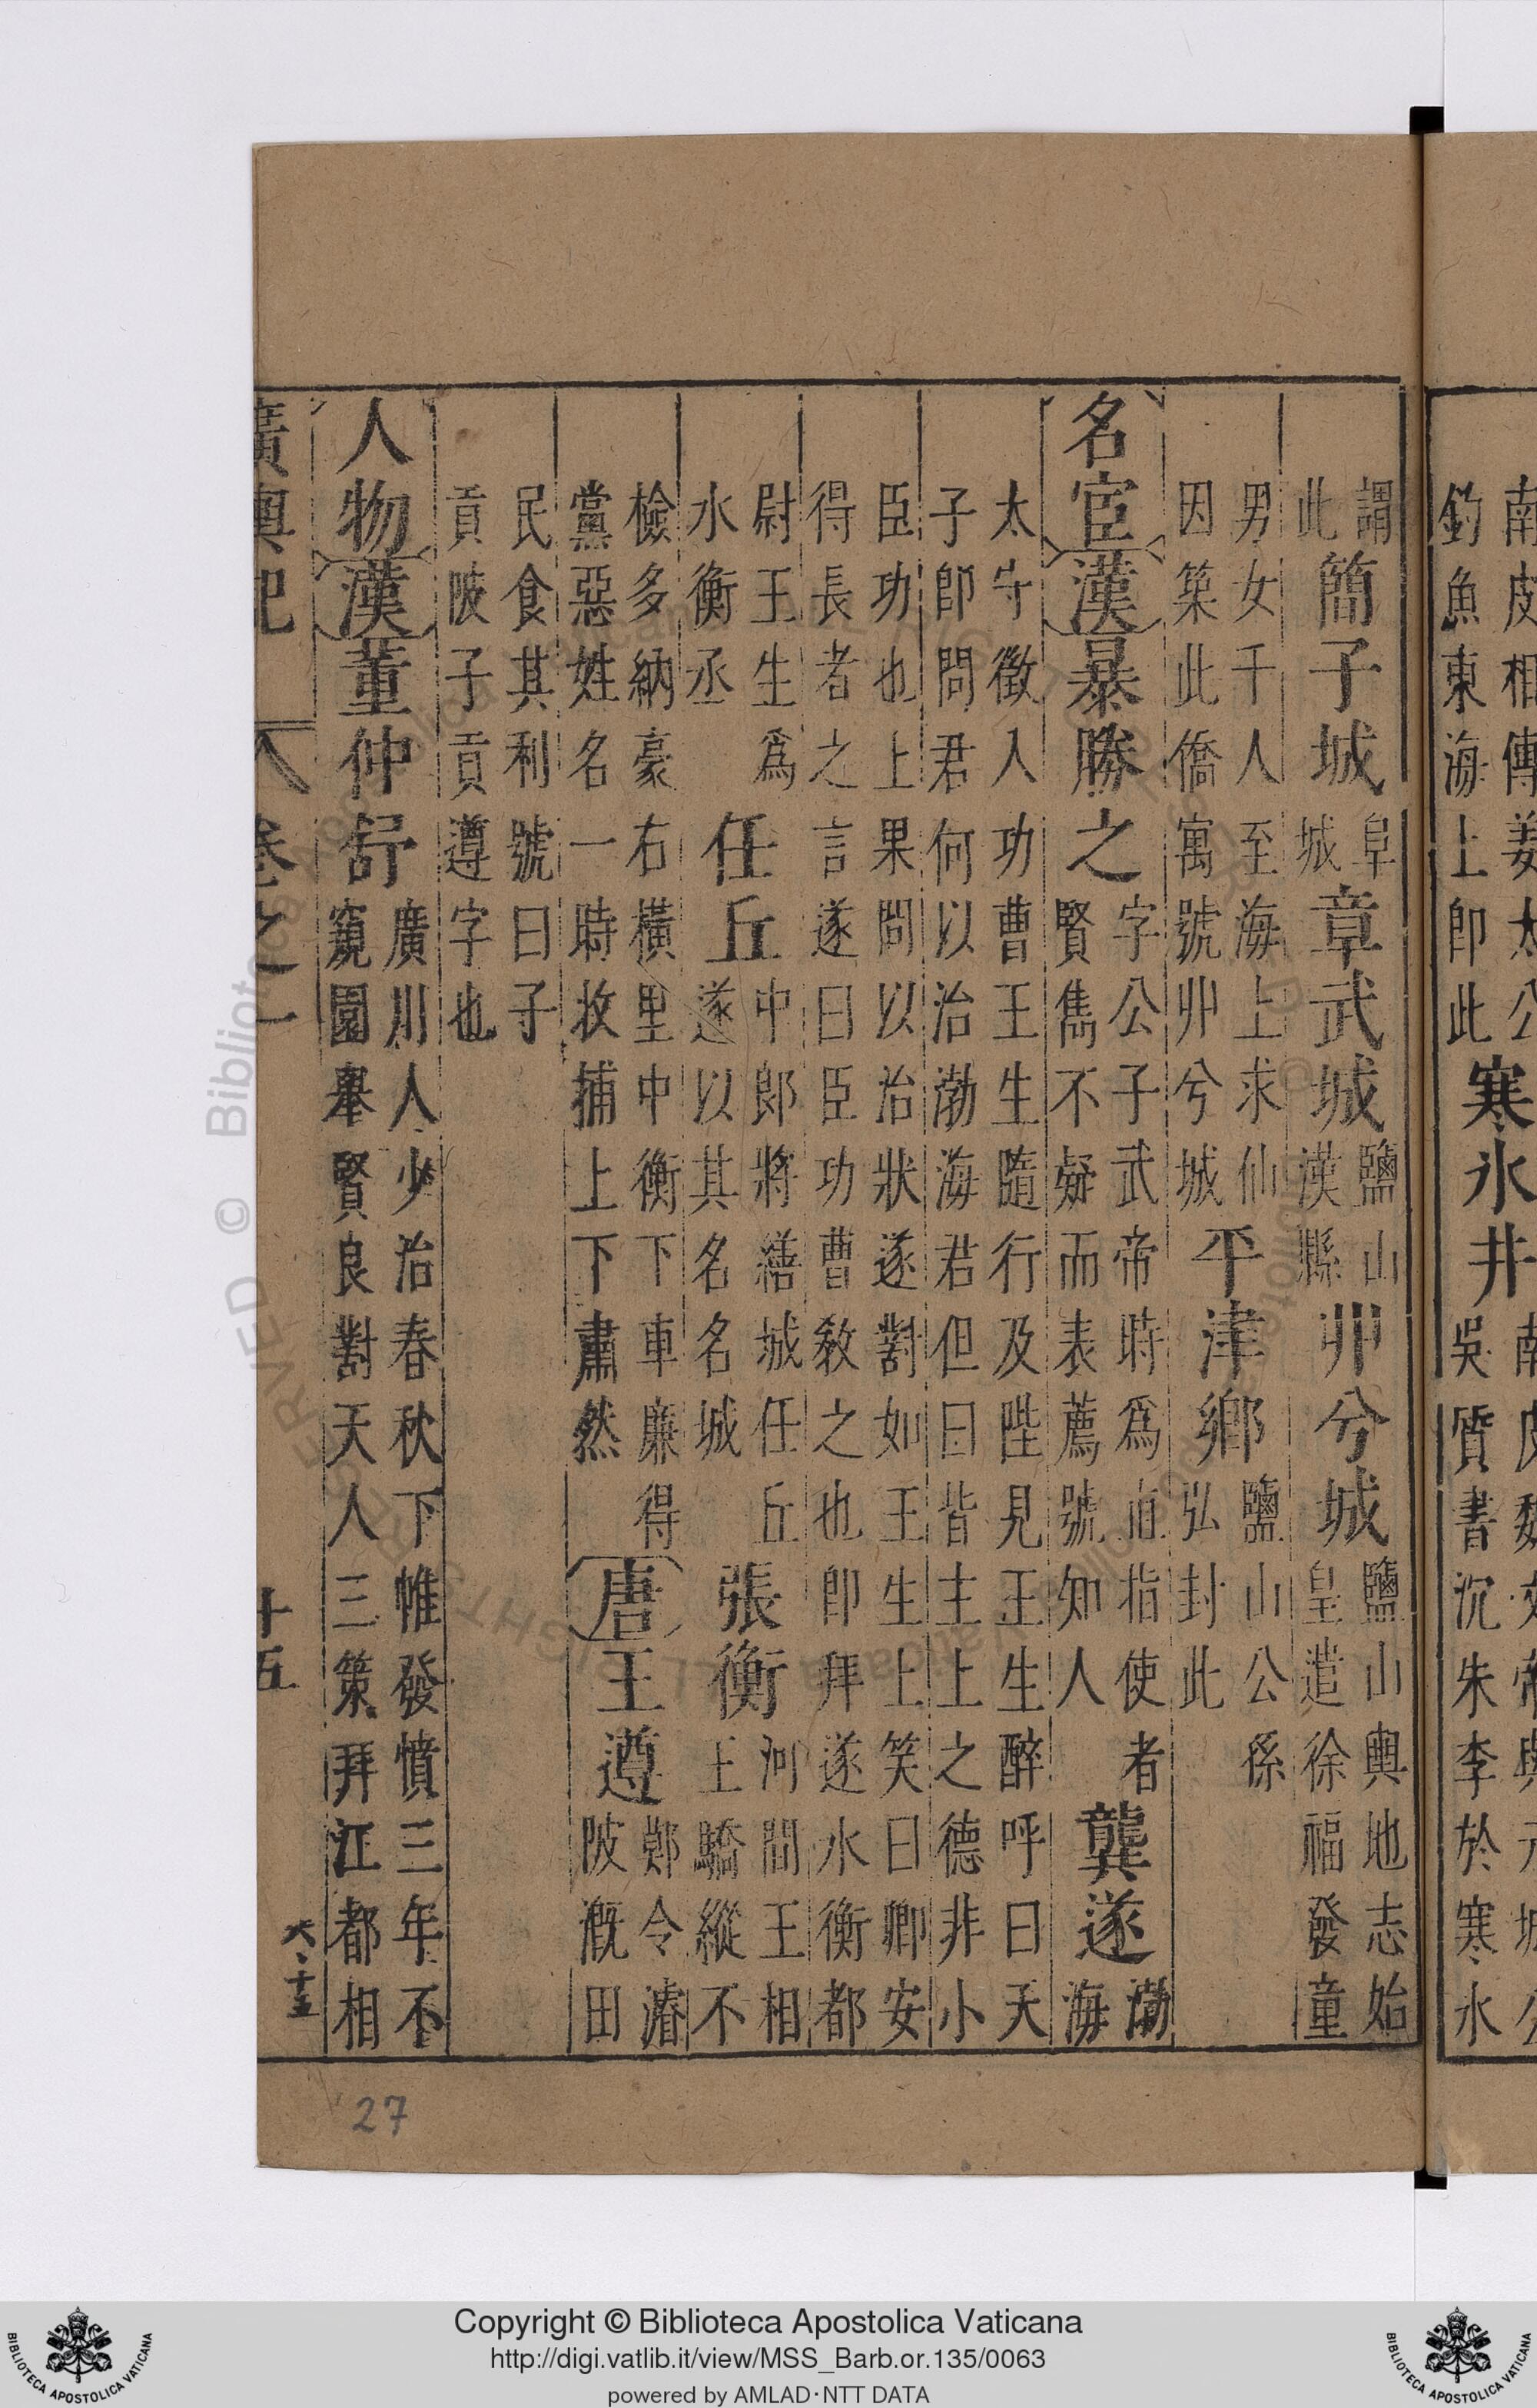 南皮相傳姜太公
釣魚東海上卽此
寒氷井
吳質書沉朱李於寒水
謂
此
簡子城
阜
城
章武城
鹽山
漢縣
丱兮城
鹽山輿地志始
皇遣徐福發童
男女千人至海上求仙
因築此僑寓號丱兮城
平津鄉
鹽山公孫
弘封此
名宦
漢
暴勝之
字公子武帝時爲直指使者
賢雋不疑而表薦號知人
龔遂
渤
海
太守徵入功曹王生隨行及陛見王生醉呼曰天
子卽問君何以治渤海君但曰皆主上之德非小
臣功也上果問以治狀遂對如王生上笑曰卿安
得長者之言遂曰臣功曹敎之也卽拜遂水衡都
尉王生爲
水衡丞
任丘
中郎將繕城任丘
遂以其名名城
張衡
河間王相
王驕縱不
檢多納豪右橫里中衡下車廉得
黨惡姓名一時收捕上下肅然
唐
王遵
鄭令濬
陂漑田
民食其利號曰子
貢陂子貢遵字也
人物
漢
董仲舒
廣川人少治春秋下帷發憤三年不
窺園舉賢良對天人三策拜江都相
廣輿記
卷之一
十五
27
Copyright © Biblioteca Apostolica Vaticana
http://digi.vatlib.it/view/MSS_Barb.or.135/0063
powered by AMLAD·NTT DATA